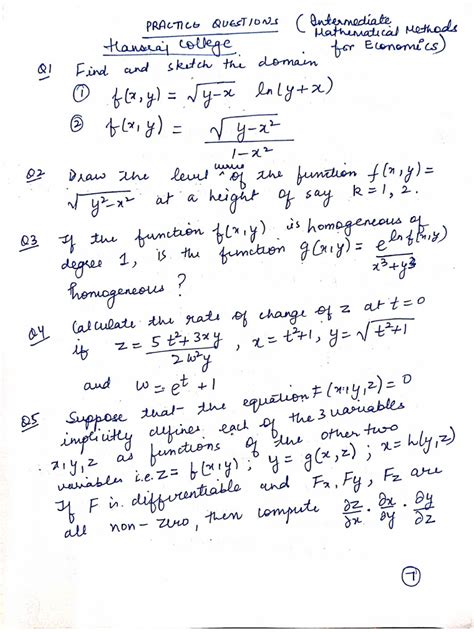 PRACTICE QUESTIONS (Intermediate Mathematical Methods for Economics)
Hansraj College
Q1 Find and sketch the domain
① f(x,y) = √(y-x) ln(y+x)
② f(x,y) = √(y-x²) / (1-x²)
Q2 Draw the level curve of the function f(x,y) =
√(y²-x²) at a height of say k = 1, 2.
Q3 If the function f(x,y) is homogeneous of
degree 1, is the function g(x,y) = e^(ln f(x,y)) / (x³+y³)
homogeneous ?
Q4 Calculate the rate of change of z at t=0
if z = (5t²+3xy) / (2w²y), x = t²+1, y = √(t²+1)
and w = e^t + 1
Q5 Suppose that the equation F(x,y,z) = 0
implicitly defines each of the 3 variables
x, y, z as functions of the other two
variables i.e. z = f(x,y) ; y = g(x,z) ; x = h(y,z)
If F is differentiable and Fx, Fy, Fz are
all non-zero, then compute ∂z/∂x · ∂x/∂y · ∂y/∂z
⑦